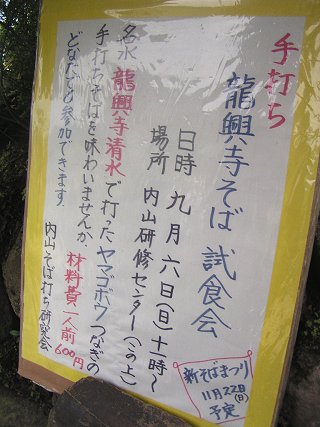 手打ち
龍興寺そば 試食会
日時 九月六日(日)十一時〜
場所 内山研修センター(この上)
名水 龍興寺清水で打ったヤマゴボウつなぎの
手打ちそばを味わいませんか、
どなたでも参加できます。
材料費一人前
600円
内山そば打ち研究会
新そばまつり
11月22日(日)
予定